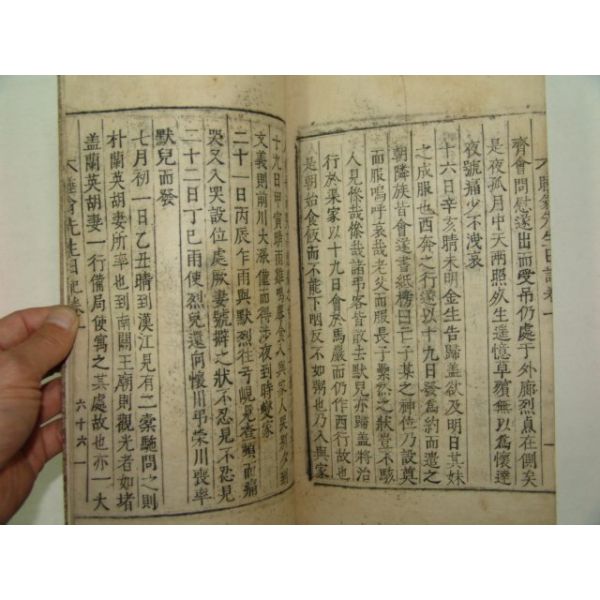 齊會問慰遂出而受吊仍處于外廊烈直在側矣
是夜孤月中天兩照欲生遙憶草殯無以爲懷達
夜號痛少不洩哀
十六日辛亥晴未明金生告歸盖欲及明日其妹
之成服也西奔之行遂以十九日發爲約而遣之
朝隣族皆會遂書紙榜曰亡子某之神位乃設奠
而服嗚呼哀哉老父而服長子纍然之狀豈不駭
人見慘哉慘哉諸弔客皆散去默兒亦歸盖將治
行於果家以十九日會於馬嚴而仍作西行故也
是朝始食飯而不能下咽反不如粥也乃入與家
十九日甲寅晴
文義則前川大漲僅而得涉夜到時變家
二十一日丙辰乍雨與默烈往弓峴見查頫而痛
哭又入哭設位處厥妻號擗之狀不忍見不忍見
二十二日丁巳雨使烈兒還向懷川弔榮川喪率
默兒而發
七月初一日乙丑晴到漢江見有二蒙馳問之則
朴蘭英胡妻所率也到南關王廟則觀光者如堵
盖蘭英胡妻一行備局使寓之其處故也亦一大
先生日記卷一
六十六